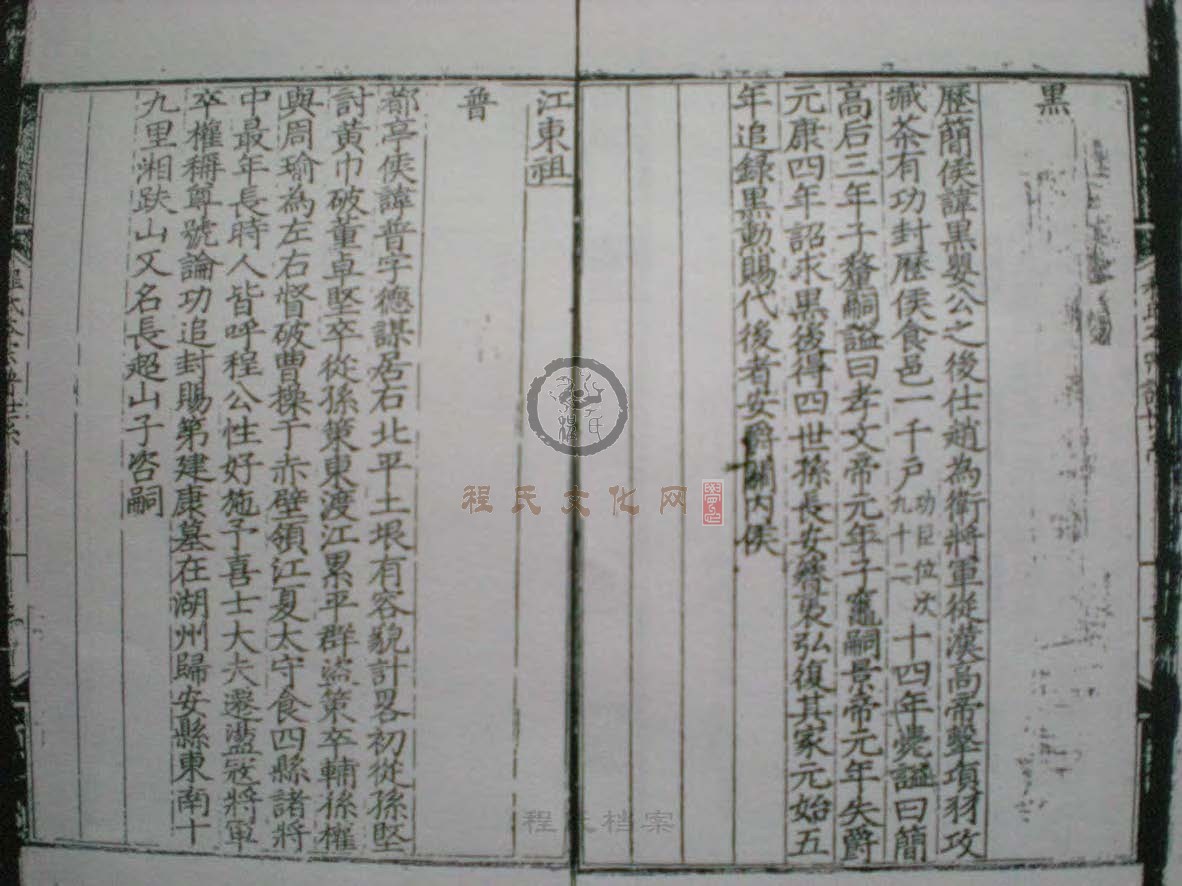 黑
歷簡侯諱黑嬰公之後仕趙為衛將軍從漢高帝擊項羽攻
臧荼有功封歷侯食邑一千戶功臣位次九十二十四年薨諡曰簡
高后三年子釐嗣諡曰孝文帝元年子竈嗣景帝元年失爵
元康四年詔求黑後得四世孫長安簪褭弘復其家元始五
年追錄黑勳賜代後者安爵關內侯
江東祖
普
都亭侯諱普字德謀居右北平土垠有容貌計畧初從孫堅
討黃巾破董卓堅卒從孫策東渡江累平群盜策卒輔孫權
與周瑜為左右督破曹操于赤壁領江夏太守食四縣諸將
中最年長時人皆呼程公性好施予喜士大夫遷盪寇將軍
卒權稱尊號論功追封賜第建康墓在湖州歸安縣東南十
九里湘趺山又名長超山子咨嗣
程氏文化网
程氏档案